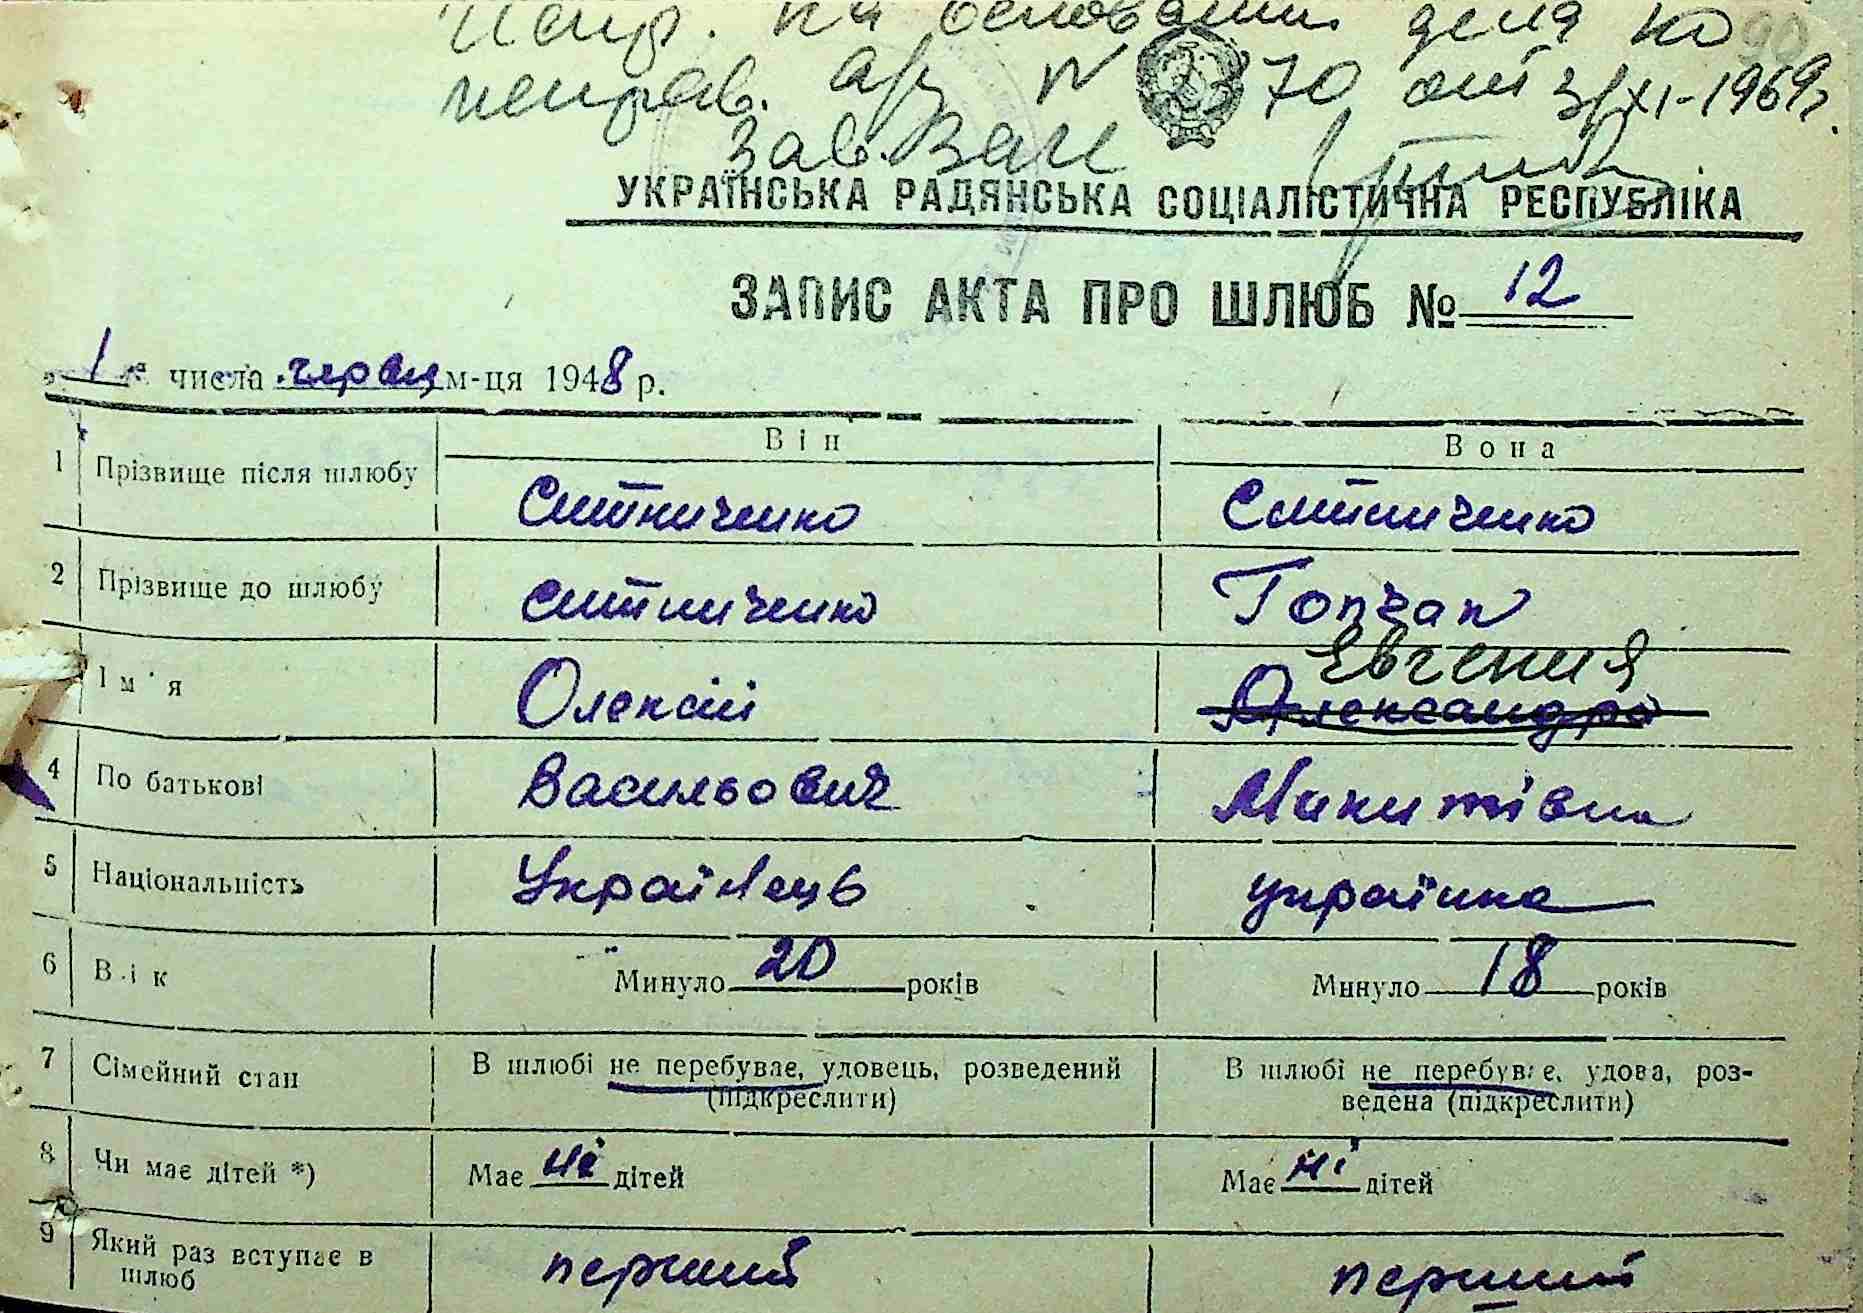 Испр. на основании дела по 90
исправ. а/з № 70 от 3/XI-1969г.
Зав. Загс
УКРАЇНСЬКА РАДЯНСЬКА СОЦІАЛІСТИЧНА РЕСПУБЛІКА
ЗАПИС АКТА ПРО ШЛЮБ № 12
„1“ числа червня м-ця 1948 р.
Він Вона
1 Прізвище після шлюбу Ситниченко Ситниченко
2 Прізвище до шлюбу Ситниченко Гопчак
Евгения
Ім'я Олексій Олександра
4 По батькові Васильович Микитівна
5 Національність Українець українка
6 Вік Минуло 20 років Минуло 18 років
7 Сімейний стан В шлюбі не перебуває, удовець, розведений В шлюбі не перебуває, удова, роз-
(підкреслити) ведена (підкреслити)
8 Чи має дітей *) Має ні дітей Має ні дітей
9 Який раз вступає в шлюб перший перший